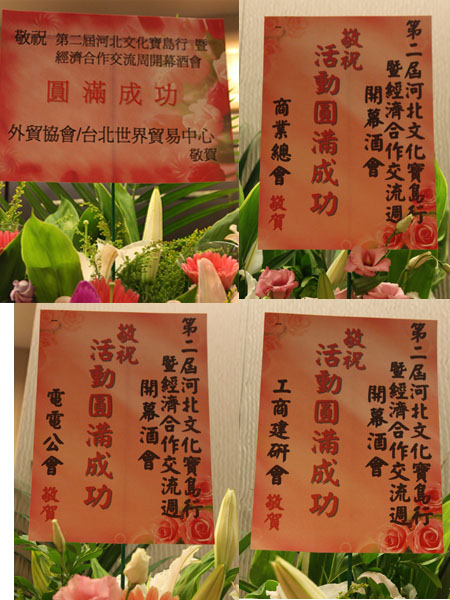 敬祝 第二屆河北文化寶島行 暨
經濟合作交流周開幕酒會
圓滿成功
外貿協會/台北世界貿易中心
敬賀
第二屆河北文化寶島行
暨經濟合作交流週
開幕酒會
敬祝
活動圓滿成功
商業總會 敬賀
第二屆河北文化寶島行
暨經濟合作交流週
開幕酒會
敬祝
活動圓滿成功
電電公會 敬賀
第二屆河北文化寶島行
暨經濟合作交流週
開幕酒會
敬祝
活動圓滿成功
工商建研會 敬賀